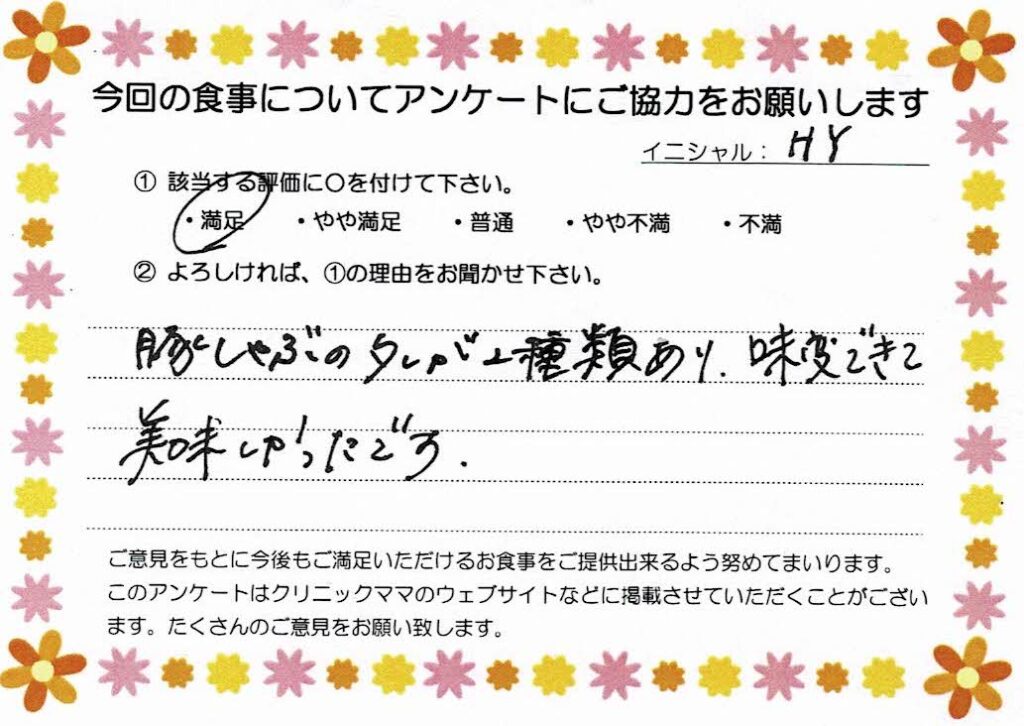 今回の食事についてアンケートにご協力をお願いします
イニシャル： HY
① 該当する評価に〇を付けて下さい。
・満足 ・やや満足 ・普通 ・やや不満 ・不満
② よろしければ、①の理由をお聞かせ下さい。
豚しゃぶのタレが2種類あり、味変できて
美味しかったです.
ご意見をもとに今後もご満足いただけるお食事をご提供出来るよう努めてまいります。
このアンケートはクリニックママのウェブサイトなどに掲載させていただくことがござい
ます。たくさんのご意見をお願い致します。